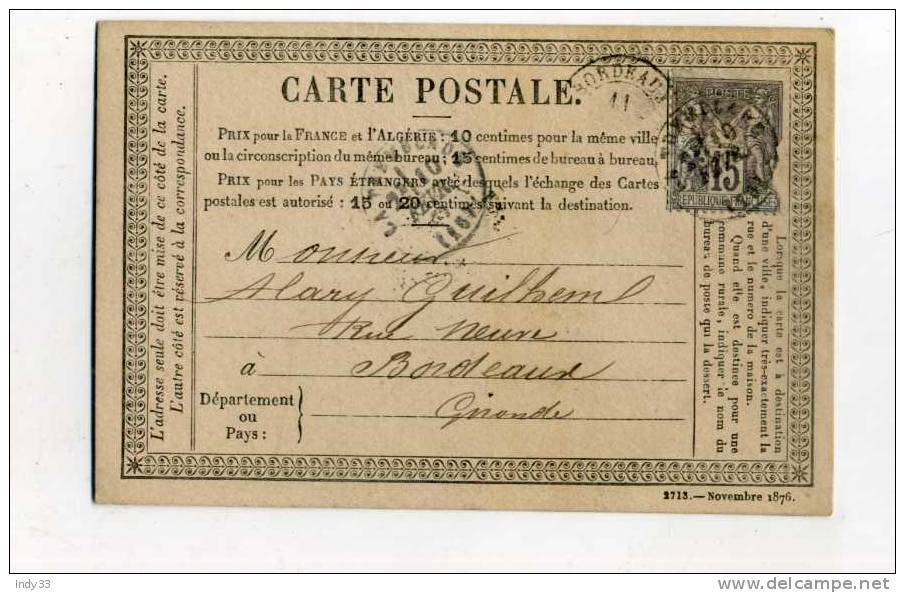 CARTE POSTALE.
PRIX pour la FRANCE et l'ALGÉRIE : 10 centimes pour la même ville
ou la circonscription du même bureau; 15 centimes de bureau à bureau,
PRIX pour les PAYS ÉTRANGERS avec desquels l'échange des Cartes
postales est autorisé : 15 ou 20 centimes suivant la destination.
Monsieur
Mary Guilhem
Rue Neuve
à Bordeaux
Gironde
Département
ou
Pays :
L'adresse seule doit être mise de ce côté de la carte.
L'autre côté est réservé à la correspondance.
BORDEAUX
11
POSTE
15
REPUBLIQUE FRANCAISE
Lorsque la carte est à destination
d'une ville, indiquer très-exactement la
rue et le numero de la maison.
Quand elle est destinée pour une
commune rurale, indiquer le nom du
bureau de poste qui la dessert.
2713.—Novembre 1876.
Indy33
www.delcampe.net